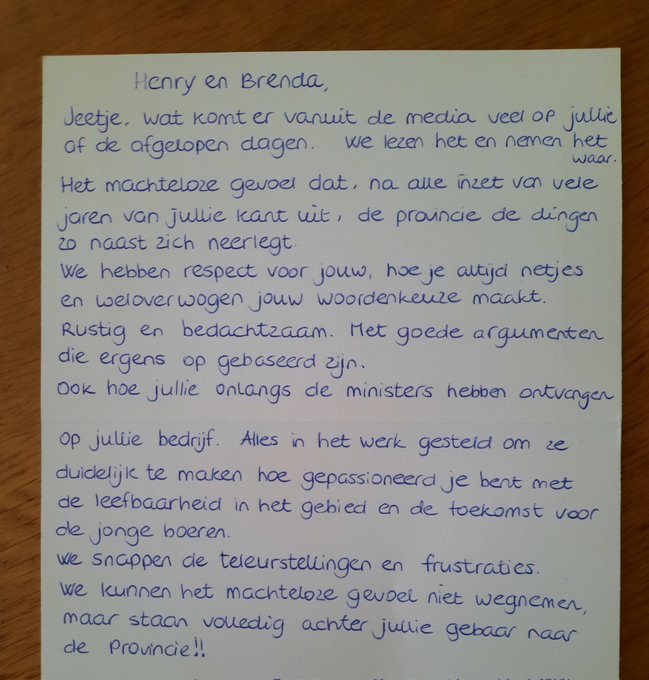 Henry en Brenda,
Jeetje, wat komt er vanuit de media veel op jullie
af de afgelopen dagen. We lezen het en nemen het
waar.
Het machteloze gevoel dat, na alle inzet van vele
jaren van jullie kant uit, de provincie de dingen
zo naast zich neerlegt.
We hebben respect voor jouw, hoe je altijd netjes
en weloverwogen jouw woordenkeuze maakt.
Rustig en bedachtzaam. Met goede argumenten
die ergens op gebaseerd zijn.
Ook hoe jullie onlangs de ministers hebben ontvangen
op jullie bedrijf. Alles in het werk gesteld om ze
duidelijk te maken hoe gepassioneerd je bent met
de leefbaarheid in het gebied en de toekomst voor
de jonge boeren.
We snappen de teleurstellingen en frustraties.
We kunnen het machteloze gevoel niet wegnemen,
maar staan volledig achter jullie gebaar naar
de Provincie!!